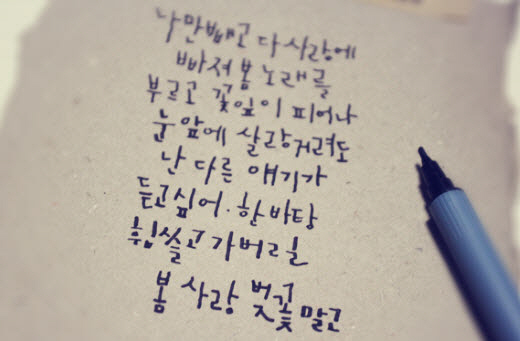 나만빼고 다 사랑에
빠져 봄 노래를
부르고 꽃잎이 피어나
눈 앞에 살랑거려도
난 다른 얘기가
듣고싶어. 한바탕
휩쓸고 가버릴
봄 사랑 벚꽃 말고